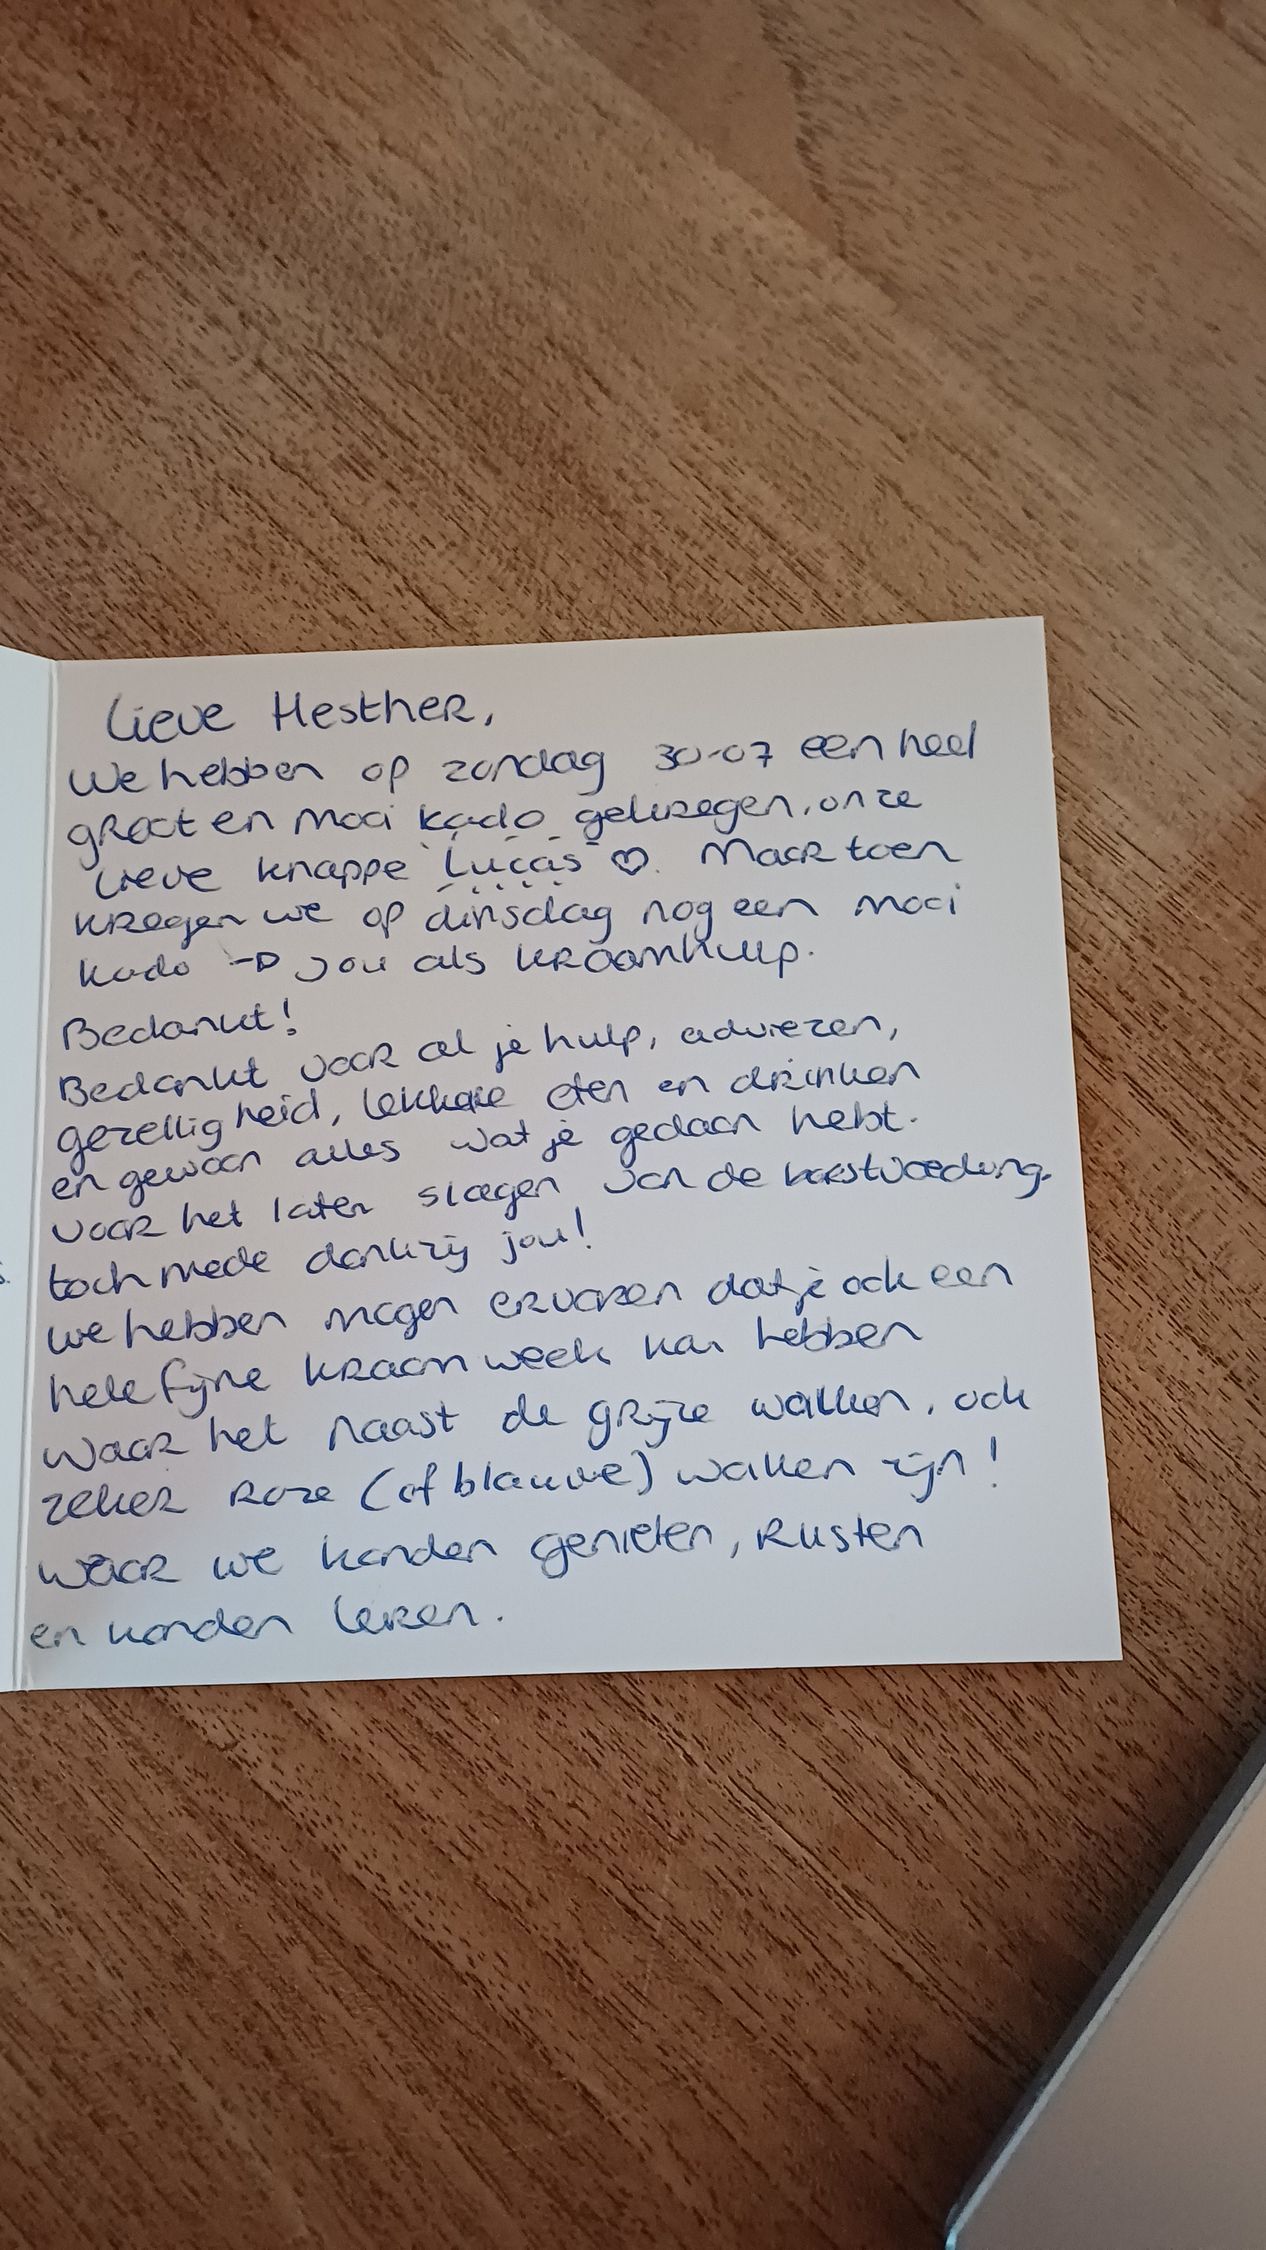 Lieve Hesther,
We hebben op zondag 30-07 een heel
groot en mooi kado gekregen, onze
lieve knappe Lucas ♡. Maar toen
kregen we op dinsdag nog een mooi
kado -> jou als kraamhulp.
Bedankt!
Bedankt voor al je hulp, adviezen,
gezelligheid, lekkere eten en drinken
en gewoon alles wat je gedaan hebt.
voor het laten slagen van de borstvoeding.
toch mede dankzij jou!
we hebben mogen ervaren dat je ook een
hele fijne kraamweek kan hebben
waar het naast de grijze wolken, ook
zeker roze (of blauwe) wolken zijn!
waar we konden genieten, rusten
en konden leren.
s.